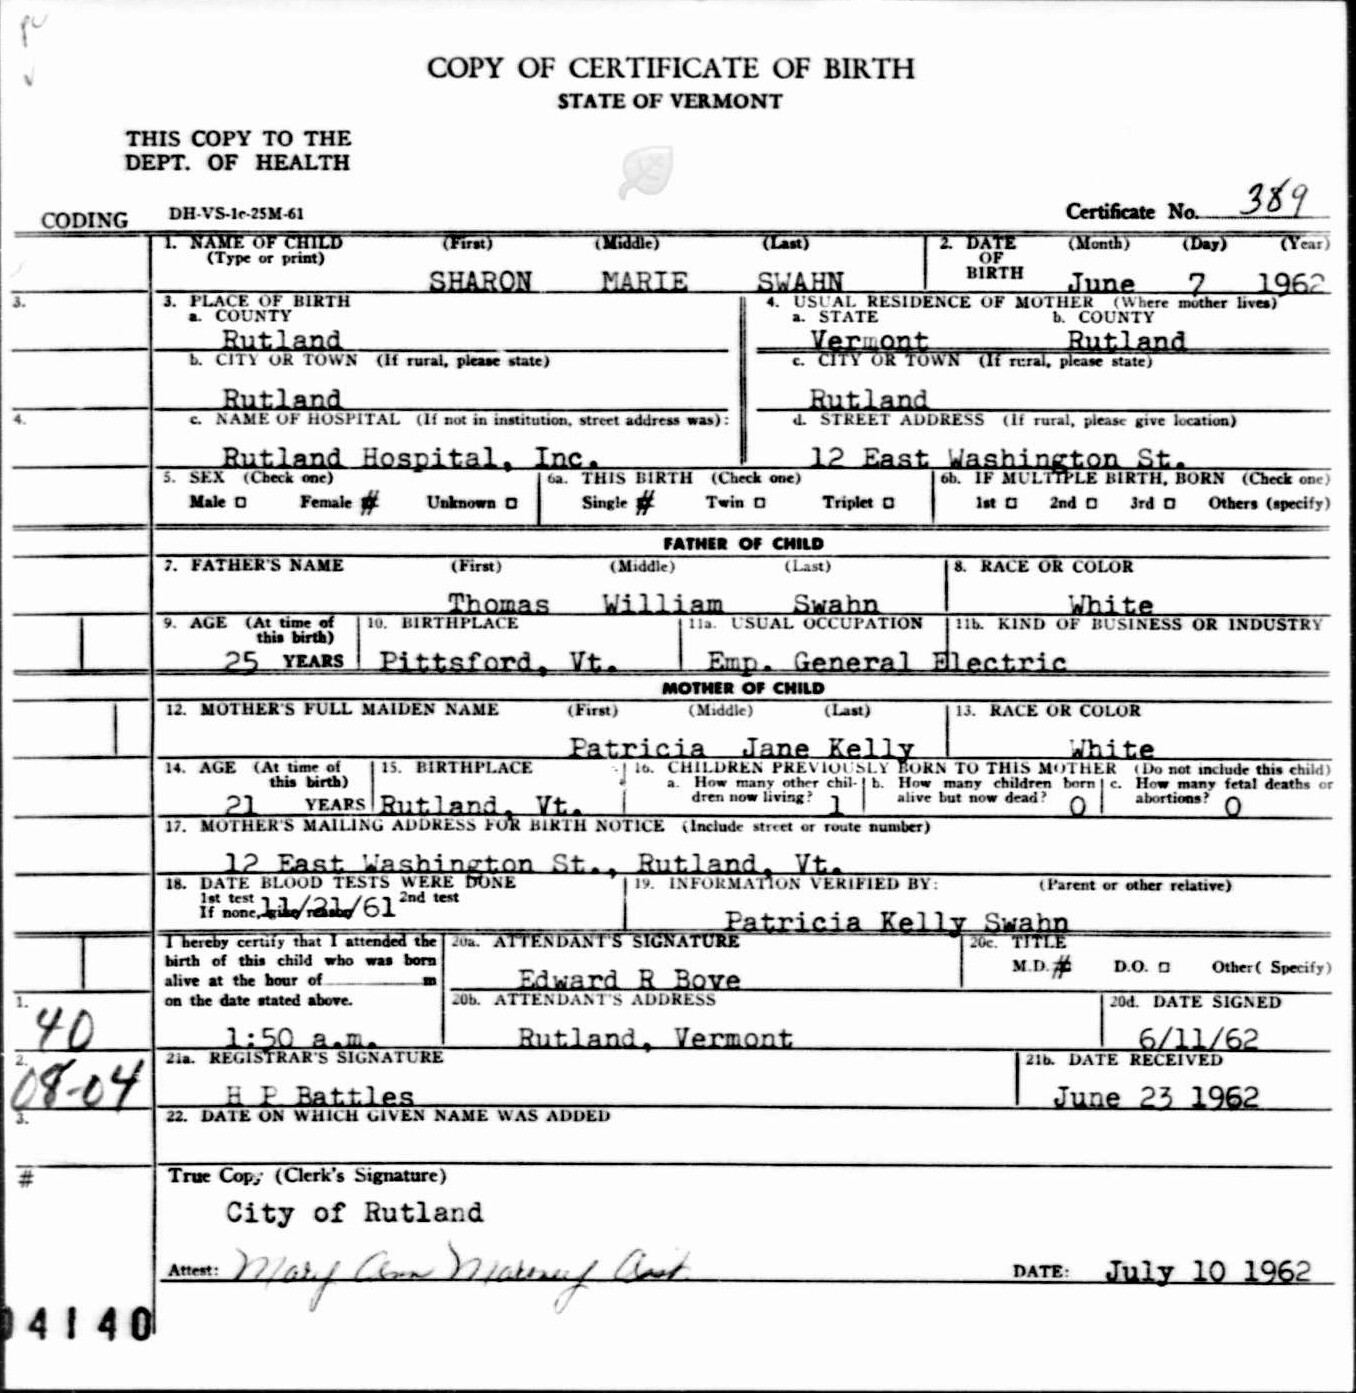 COPY OF CERTIFICATE OF BIRTH
STATE OF VERMONT
THIS COPY TO THE
DEPT. OF HEALTH
CODING DH-VS-1c-25M-61 Certificate No. 389
1. NAME OF CHILD (First) (Middle) (Last) 2. DATE (Month) (Day) (Year)
(Type or print) OF
BIRTH
SHARON MARIE SWAHN June 7 1962
3. 3. PLACE OF BIRTH 4. USUAL RESIDENCE OF MOTHER (Where mother lives)
a. COUNTY a. STATE b. COUNTY
Rutland Vermont Rutland
b. CITY OR TOWN (If rural, please state) c. CITY OR TOWN (If rural, please state)
Rutland Rutland
4. c. NAME OF HOSPITAL (If not in institution, street address was): d. STREET ADDRESS (If rural, please give location)
Rutland Hospital, Inc. 12 East Washington St.
5. SEX (Check one) 6a. THIS BIRTH (Check one) 6b. IF MULTIPLE BIRTH, BORN (Check one)
Male □ Female # Unknown □ Single # Twin □ Triplet □ 1st □ 2nd □ 3rd □ Others (specify)
FATHER OF CHILD
7. FATHER'S NAME (First) (Middle) (Last) 8. RACE OR COLOR
Thomas William Swahn White
9. AGE (At time of 10. BIRTHPLACE 11a. USUAL OCCUPATION 11b. KIND OF BUSINESS OR INDUSTRY
this birth)
25 YEARS Pittsford, Vt. Emp. General Electric
MOTHER OF CHILD
12. MOTHER'S FULL MAIDEN NAME (First) (Middle) (Last) 13. RACE OR COLOR
Patricia Jane Kelly White
14. AGE (At time of 15. BIRTHPLACE 16. CHILDREN PREVIOUSLY BORN TO THIS MOTHER (Do not include this child)
this birth) a. How many other chil- b. How many children born c. How many fetal deaths or
dren now living? 1 alive but now dead? 0 abortions? 0
21 YEARS Rutland, Vt.
17. MOTHER'S MAILING ADDRESS FOR BIRTH NOTICE (Include street or route number)
12 East Washington St., Rutland, Vt.
18. DATE BLOOD TESTS WERE DONE 19. INFORMATION VERIFIED BY: (Parent or other relative)
1st test 2nd test
If none, give reason 11/21/61
Patricia Kelly Swahn
I hereby certify that I attended the 20a. ATTENDANT'S SIGNATURE 20c. TITLE
birth of this child who was born M.D. # D.O. □ Other( Specify)
alive at the hour of m Edward R Bove
on the date stated above. 20b. ATTENDANT'S ADDRESS 20d. DATE SIGNED
1.
40 1:50 a.m. Rutland, Vermont 6/11/62
2. 21a. REGISTRAR'S SIGNATURE 21b. DATE RECEIVED
08-04 H P Battles June 23 1962
3. 22. DATE ON WHICH GIVEN NAME WAS ADDED
# True Copy (Clerk's Signature)
City of Rutland
Attest: Mary Ann Asst. DATE: July 10 1962
04140